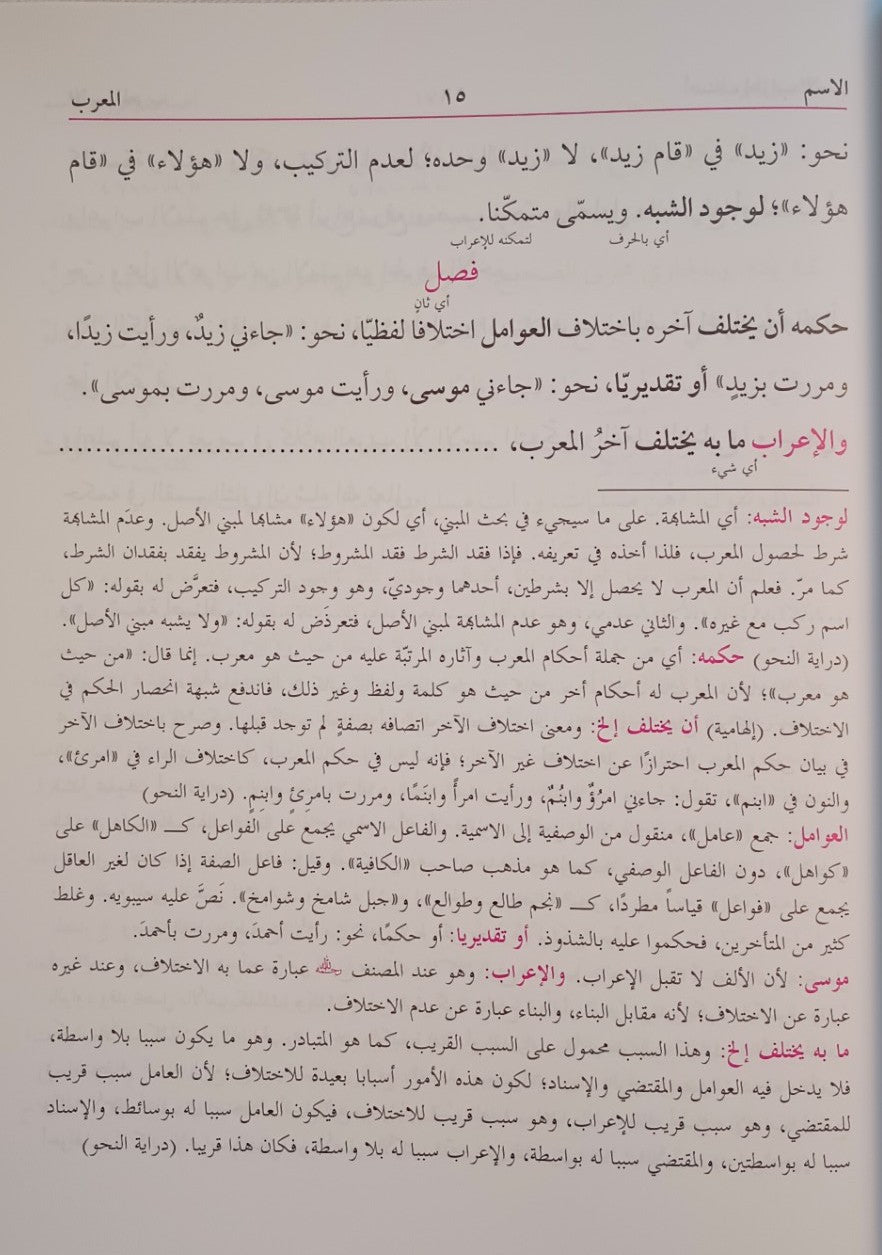 الاسم ١٥ المعرب
نحو: «زيد» في «قام زيد»، لا «زيد» وحده؛ لعدم التركيب، ولا «هؤلاء» في «قام
هؤلاء»؛ لوجود الشبه. ويسمّى متمكّنا.
أي بالحرف لتمكنه للإعراب
فصل
أي ثانٍ
حكمه أن يختلف آخره باختلاف العوامل اختلافا لفظيّا، نحو: «جاءني زيدٌ، ورأيت زيدًا،
ومررت بزيدٍ» أو تقديريّا، نحو: «جاءني موسى، ورأيت موسى، ومررت بموسى».
والإعراب ما به يختلف آخرُ المعرب، ................................................
أي شيء
لوجود الشبه: أي المشابهة. على ما سيجيء في بحث المبني، أي لكون «هؤلاء» مشابها لمبني الأصل. وعدَم المشابهة
شرط لحصول المعرب، فلذا أخذه في تعريفه. فإذا فقد الشرط فقد المشروط؛ لأن المشروط يفقد بفقدان الشرط،
كما مرّ. فعلم أن المعرب لا يحصل إلا بشرطين، أحدهما وجوديّ، وهو وجود التركيب، فتعرَّض له بقوله: «كل
اسم ركب مع غيره». والثاني عدمي، وهو عدم المشابهة لمبني الأصل، فتعرذَض له بقوله: «ولا يشبه مبني الأصل».
(دراية النحو) حكمه: أي من جملة أحكام المعرب وآثاره المرتبّة عليه من حيث هو معرب. إنما قال: «من حيث
هو معرب»؛ لأن المعرب له أحكام أخر من حيث هو كلمة ولفظ وغير ذلك، فاندفع شبهة انحصار الحكم في
الاختلاف. (إلهامية) أن يختلف إلخ: ومعنى اختلاف الآخر اتصافه بصفةٍ لم توجد قبلها. وصرح باختلاف الآخر
في بيان حكم المعرب احترازًا عن اختلاف غير الآخر؛ فإنه ليس في حكم المعرب، كاختلاف الراء في «امرئ»،
والنون في «ابنم»، تقول: جاءني امرُؤٌ وابنُمٌ، ورأيت امرأً وابنَمًا، ومررت بامرِئٍ وابنِمٍ. (دراية النحو)
العوامل: جمع «عامل»، منقول من الوصفية إلى الاسمية. والفاعل الاسمي يجمع على الفواعل، كـ «الكاهل» على
«كواهل»، دون الفاعل الوصفي، كما هو مذهب صاحب «الكافية». وقيل: فاعل الصفة إذا كان لغير العاقل
يجمع على «فواعل» قياساً مطردًا، كـ «نجم طالع وطوالع»، و«جبل شامخ وشوامخ». نَصَّ عليه سيبويه. وغلط
كثير من المتأخرين، فحكموا عليه بالشذوذ. أو تقديريا: أو حكمًا، نحو: رأيت أحمدَ، ومررت بأحمدَ.
موسى: لأن الألف لا تقبل الإعراب. والإعراب: وهو عند المصنف عبارة عما به الاختلاف، وعند غيره
عبارة عن الاختلاف؛ لأنه مقابل البناء، والبناء عبارة عن عدم الاختلاف.
ما به يختلف إلخ: وهذا السبب محمول على السبب القريب، كما هو المتبادر. وهو ما يكون سببا بلا واسطة،
فلا يدخل فيه العوامل والمقتضي والإسناد؛ لكون هذه الأمور أسبابا بعيدة للاختلاف؛ لأن العامل سبب قريب
للمقتضي، وهو سبب قريب للإعراب، وهو سبب قريب للاختلاف، فيكون العامل سببا له بوسائط، والإسناد
سببا له بواسطتين، والمقتضي سببا له بواسطة، والإعراب سببا له بلا واسطة، فكان هذا قريبا. (دراية النحو)